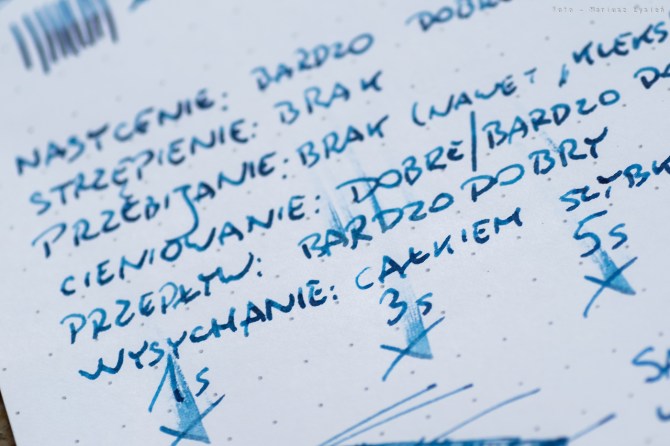 foto - Mariusz Zysiak
NASYCENIE: BARDZO DOBRE
STRZĘPIENIE: BRAK
PRZEBIJANIE: BRAK (NAWET KLEKS
CIENIOWANIE: DOBRE/BARDZO DO
PRZEPŁYW: BARDZO DOBRY
WYSYCHANIE: CAŁKIEM SZYBK
1s 3s 5s